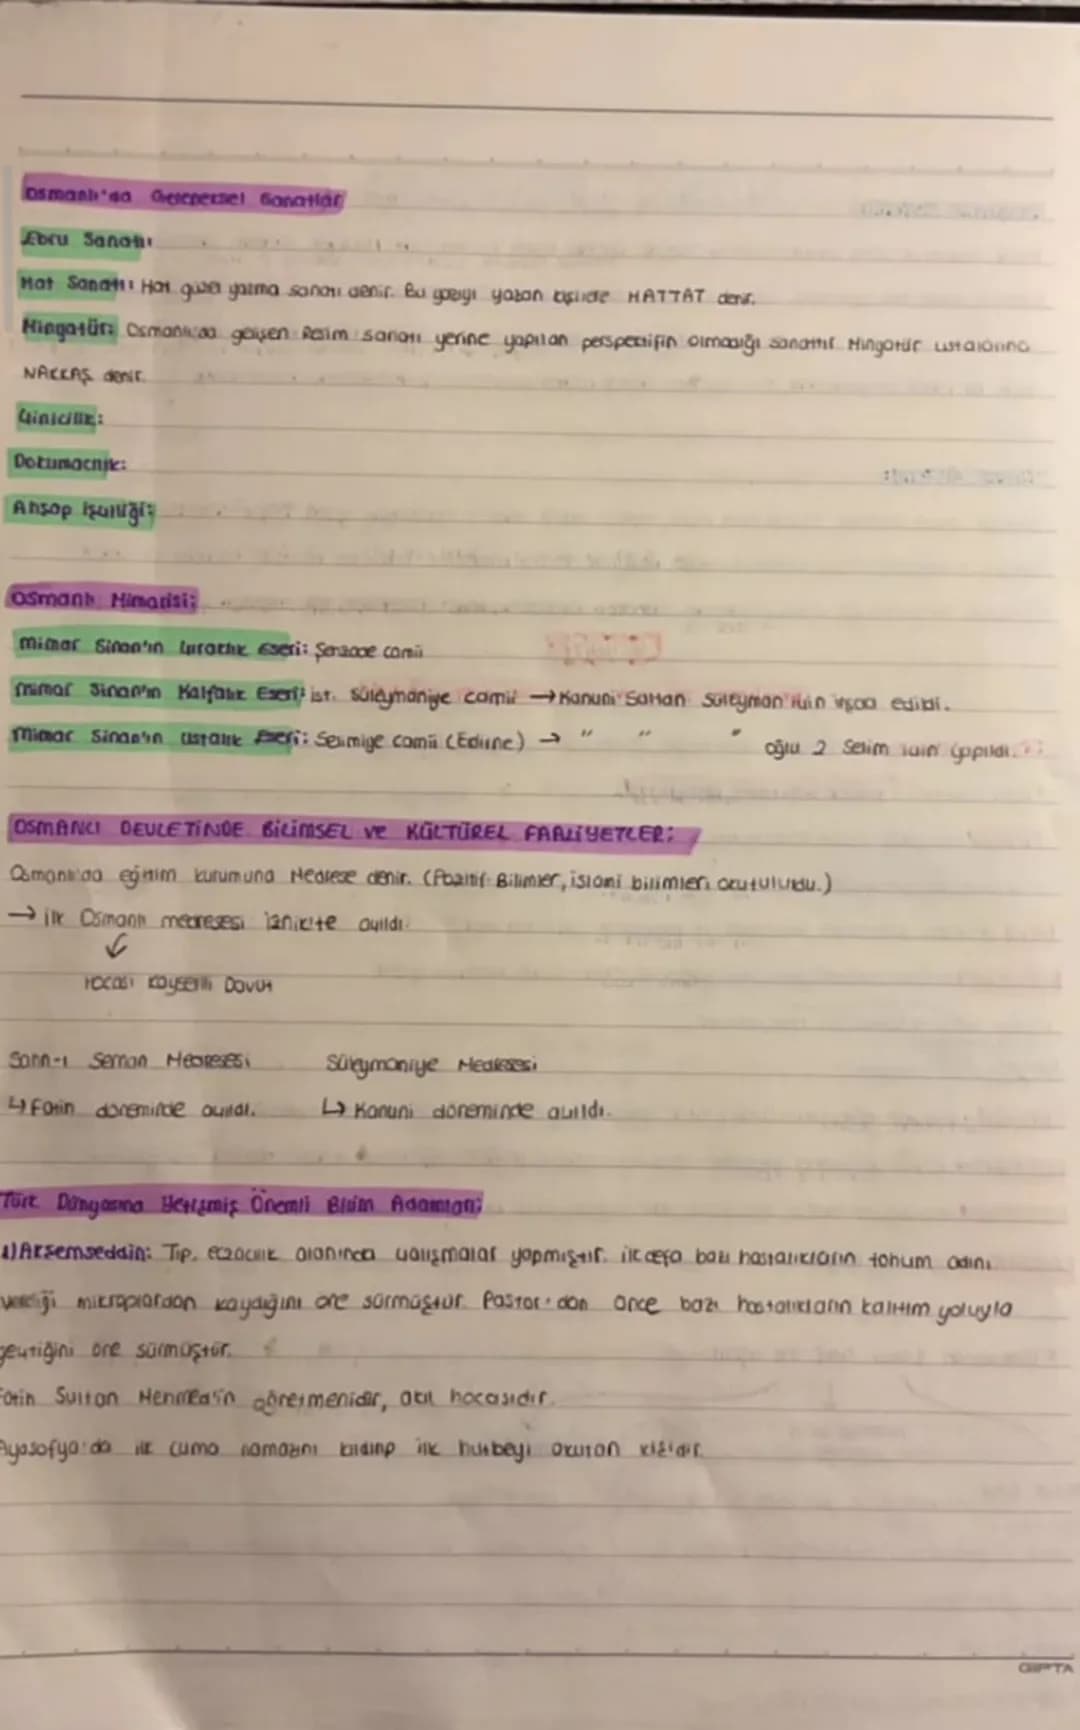 Osmanlı'da Geleneksel Sanatlar
Ebru Sanatı:
Hat Sanatı: Hat güzel yazma sanatı denir. Bu yazıyı yazan kişilere HATTAT denir.
Mingatür: Osmanlıda gelişen Resim sanatı yerine yapılan perspektifin olmadığı sanattır. Mingatür ustalarına
NAKKAŞ denir.
Çinicilik:
Dokumacılık:
Ahşap İşçiliği:
Osmanlı Mimarisi;
Mimar Sinan'ın Çıraklık Eseri: Şehzade camii
Mimar Sinan'ın Kalfalık Eseri: ist. Süleymaniye camii → Kanuni Sultan Süleyman için inşaa edildi.
Mimar Sinan'ın Ustalık Eseri: Selimiye camii (Edirne) → " " " oğlu 2 Selim için yapıldı.
OSMANLI DEVLETİNDE BİLİMSEL ve KÜLTÜREL FAALİYETLER:
Osmanlıda eğitim kurumuna Medrese denir. (Pozitif Bilimler, islami bilimleri okutulurdu.)
→ ilk Osmanlı medresesi iznik'te açıldı.
↓
Hocası Kayserili Davut
Sahn-ı Seman Medresesi Süleymaniye Medresesi
↳ Fatih döneminde açıldı. ↳ Kanuni döneminde açıldı.
Türk Dünyasına Yetişmiş Önemli Bilim Adamları;
1) Akşemseddin: Tıp, eczacılık alanında çalışmalar yapmıştır. ilk defa bazı hastalıkların tohum adını
verdiği mikroplardan kaydığını öne sürmüştür. Pastör'dan önce bazı hastalıkların kalıtım yoluyla
geçtiğini öne sürmüştür.
Fatih Sultan Mehmed'in öğretmenidir, akıl hocasıdır.
Ayasofya'da ilk cuma namazını kıldırıp ilk hutbeyi okutan kişidir.
GIPTA